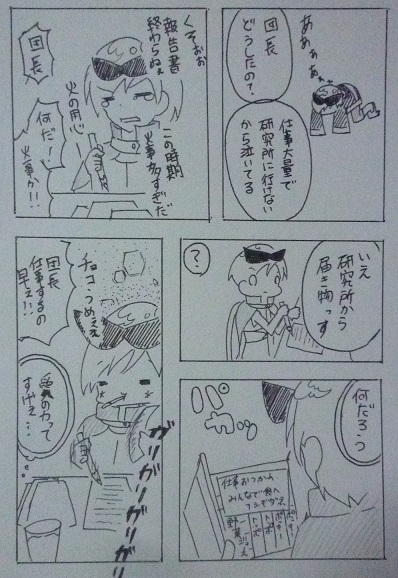 ああぁぁぁ
団長
どうしたの?
仕事大量で
研究所に行けない
から泣いてる
くそぉぉ
報告書
終わらねぇ
この時期
火事多すぎだ
火の用心
団長
何だ!
火事か!!
いえ
研究所から
届き物っす
?
何だろう
パカッ
仕事おつかれ
みんなで食べ
チョコ
つめぇぇ
団長
仕事するの
早ぇ!!
愛の力って
すげぇ…
ガリガリガリガリガリ